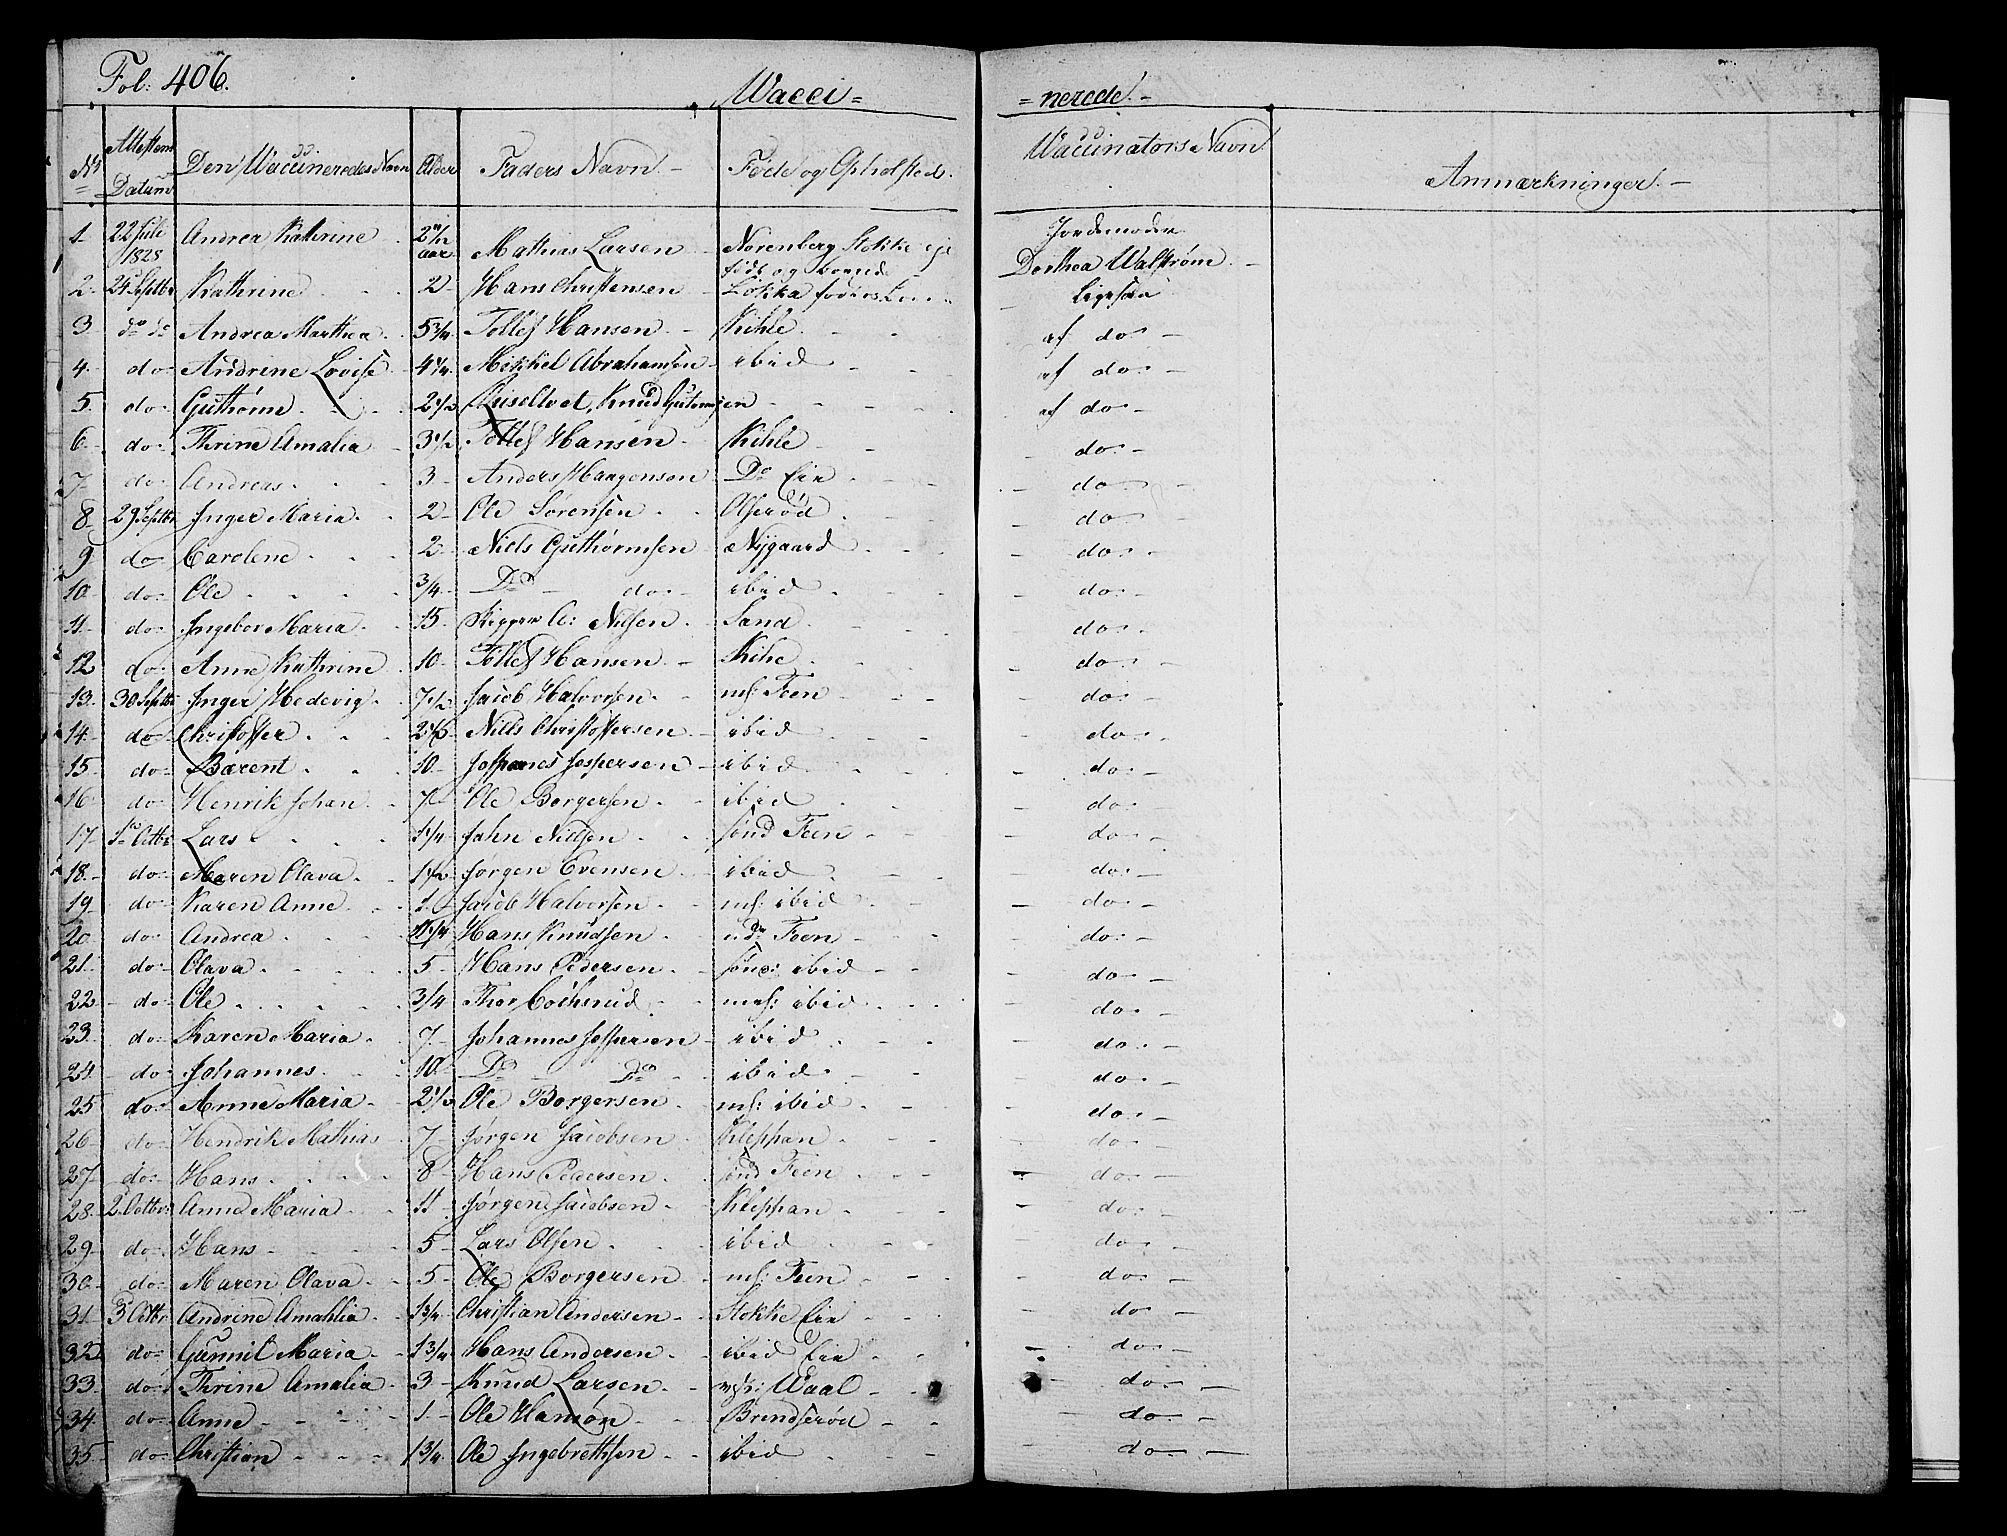 Fol: 406.
Wacci=
=nerede.
No Attestens Datum Den Waccineredes Navn Alder Faders Navn Føde og Opholsted. Waccinatorss Navn Anmærkninger.
1 22 Juli 1828 Andrea Kathrine 2 11/12 aar Mathias Larsen Norenberg Stokke eje født og boende Jordemoder Dorthea Walstrøm
2 24 Septbr Kathrine 2 Hans Christensen Løkka Ligesaa
3 do do Andrea Marthea 5 3/4 Tollef Hansen Kihle af do
4 do Andrine Lovise 4 1/4 Mikkel Abrahamsen ibid af do
5 do Guthorm 2 1/2 Knud Gutormsen af do
6 do Thrine Amalia 3 1/2 Tollef Hansen Kihle do
7 do Andreas 3 Anders Haagensen Do Eie do
8 29 Septbr Inger Maria 2 Ole Sørensen Olserød do
9 do Carolene 2 Niels Guthormsen Nygaard do
10 do Ole 3/4 Do do ibid do
11 do Ingebor Maria 15 Skipper C: Nilsen Sand do
12 do Anne Kathrine 10 Tollef Hansen Kihe do
13 30 Septbr Inger Hedevig 7 1/2 Jacob Halvorsen ns: Feen do
14 do Christoffer Nills Christoffersen ibid do
15 do Bærent 10 Johannes Jespersen ibid do
16 do Henrik Johan 7 Ole Borgersen ibid do
17 1te Octbr Lars 1 1/4 Jahn Nielsen sønd Feen do
18 do Maren Olava 1 1/2 Jørgen Evensen ibid do
19 do Karen Anne 1 Jacob Halvorsen ns: ibid do
20 do Andrea Hans Knudsen Feen do
21 do Olava 5 Hans Pedersen sønd: ibid do
22 do Ole 3/4 Thor ns: ibid do
23 do Karen Maria 7 Johannes Jespersen ibid do
24 do Johannes 10 Do Do ibid do
25 do Anne Maria 2 1/2 Ole Borgersen ns: ibid do
26 do Hendrik Mathias 7 Jørgen Jacobsen Kleppan do
27 do Hans 8 Hans Pedersen sønd Feen do
28 2 Octbr Anne Maria 11 Jørgen Jacobsen Kleppan do
29 do Hans 5 Lars Olsen ibid do
30 do Maren Olava 5 Ole Borgersen ns: Feen do
31 3 Octbr Andrine Amahlia 1 3/4 Christian Andersen Stokke Eie do
32 do Gunnil Maria 1 3/4 Hans Andersen ibid Eie do
33 do Thrine Amalia 3 Knud Larsen Waal do
34 do Anne 1 Ole Hansøn Brendserød do
35 do Christian 1 3/4 Ole Ingebrethsen ibid do